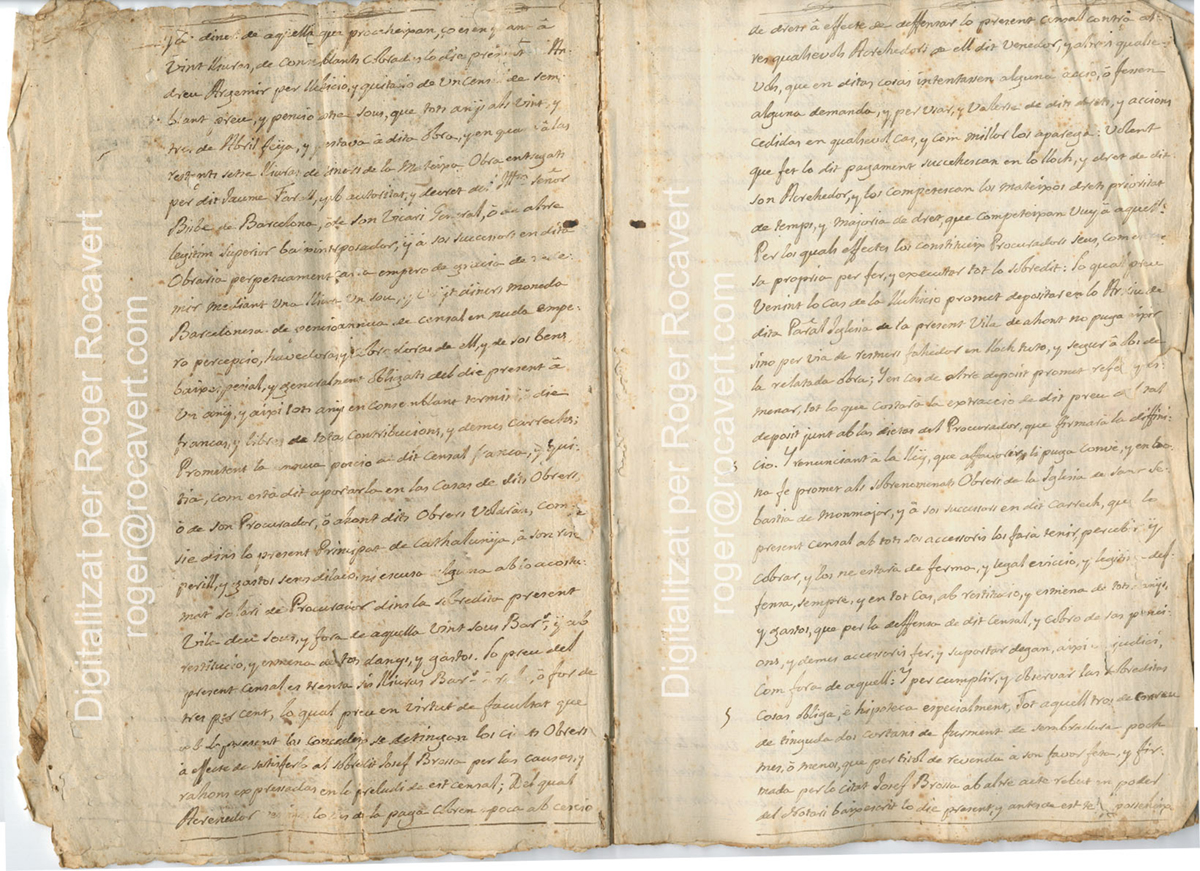 y lo diner de aquella que procehexan, ço es en quant à
Vint lliuras, de consemblants cobradas lo dia present de An-
dreu Argemir per lluhicio, y quitacio de Un Censal de sem-
blant preu, y pencio sous, que tots anys als vint, y
tres de Abril feya, y prestava à dita Obra, y en quant à las
restants setse lliuras de diners de la Mateixa Obra entregats
per dit Jaume ab autoritat, y decret del Illm Señor
Bisbe de Barcelona, ò de son Vicari General, ò de altre
legitim Superior baix interposador, y à sos successors en dita
Obraria perpetuament, gracia empero de redi-
mir mediant Una lliura Un sou, y diners moneda
Barcelonesa de pencio annua de censal en nuda empe-
ro percepcio, havedoras, y cobradoras de ell, y de sos bens
baix especial, y generalment obligats del die present à
Un any, y aixi tots anys en consemblant termini, ò die
francas, y libres de totas Contribucions, y demes Carrechs;
Prometent la annua pencio de dit Censal franca, y Qui-
tia, com està dit aportarla en las Casas de dits Obrers,
ò de son Procurador, ò ahont dits Obrers Voldran, com
sie dins lo present Principat de Cathalunya, à son risch
perill, y gastos sens dilacio, ni escusa alguna ab lo acostu-
mat Salari de Procurador dins la sobredita present
Vila deu Sous, y fora de aquella Vint Sous Bar.s, y ab
restitucio, y esmena de tots danys, y gastos. lo preu del
present Censal es trenta sis lliuras Bar.s à for de
tres per cent, lo qual preu en virtut de facultat que
ab lo present los concedeix se detingan los citats Obrers
à effecte de satisferlo al sobredit Josef Brossa per las causas, y
rahons expressadas en lo preludi de est censal; Del qual
Acrehedor de la paga cobren poca ab cessio
de drets à effecte de deffensar lo present Censal contra al-
tres qualsevols Acrehedors de ell dit Venedor, y altres qualse-
vols, que en ditas cosas intentassen alguna accio, ò fessen
alguna demanda, y per usar, y Valerse de dits drets, y accions
Cedidas en qualsevol cas, y com millor los aparega: Volent
que fet lo dit pagament succehescan en lo lloch, y dret de dit
son Acrehedor, y los Competescan los mateixos drets prioritat
de temps, y Majoria de dret, que competeixan Vuy à aquell.
Per los quals effectes los constitueix Procuradors seus, com en cosa
sa propria per fer, y executar tot lo sobredit: lo qual preu
Venint lo cas de la lluhicio promet depositar en lo Arxiu de
dita Paral Iglesia de la present Vila de ahont no puga exir
sino per via de resmers fahedor en lloch tuto, y segur à obs de
la relatada obra; Y en cas de altre deposit promet refer, y es-
menar, tot lo que costarà la extraccio de dit preu de tal
deposit junt ab las dietas del Procurador, que firmarà la diffini-
cio. Y renunciant à la lley, que affavorirli puga convè, y en bo-
na fe promet als sobrenomenats Obrers de la Iglesia de Sant Se-
bastia de Monmajor, y à sos successors en dit Carrech, que lo
present Censal ab tots sos accessoris los farà tenir, percebir, y
Cobrar, y los ne estarà de ferma, y legal eviccio, y legitima def-
fensa, sempre, y en tot cas, ab restitucio, y esmena de tots danys,
y gastos, que per la deffensa de dit censal, y cobro de sas penci-
ons, y demes accessoris fer, y suportar degan, aixi en judici,
Com fora de aquell: Y per cumplir, y observar las sobreditas
Cosas obliga, è hipoteca especialment, Tot aquell tros de terra
de tinguda dos cortans de forment de sembradura poch
mes, ò menos, que per titol de revenda à son favor feta, y fir-
mada per lo citat Josef Brossa ab altre acte rebut en poder
del Notari baix escrit lo die present, y antes de est te, posseheix
Digitalitzat per Roger Rocavert
roger@rocavert.com
Digitalitzat per Roger Rocavert
roger@rocavert.com